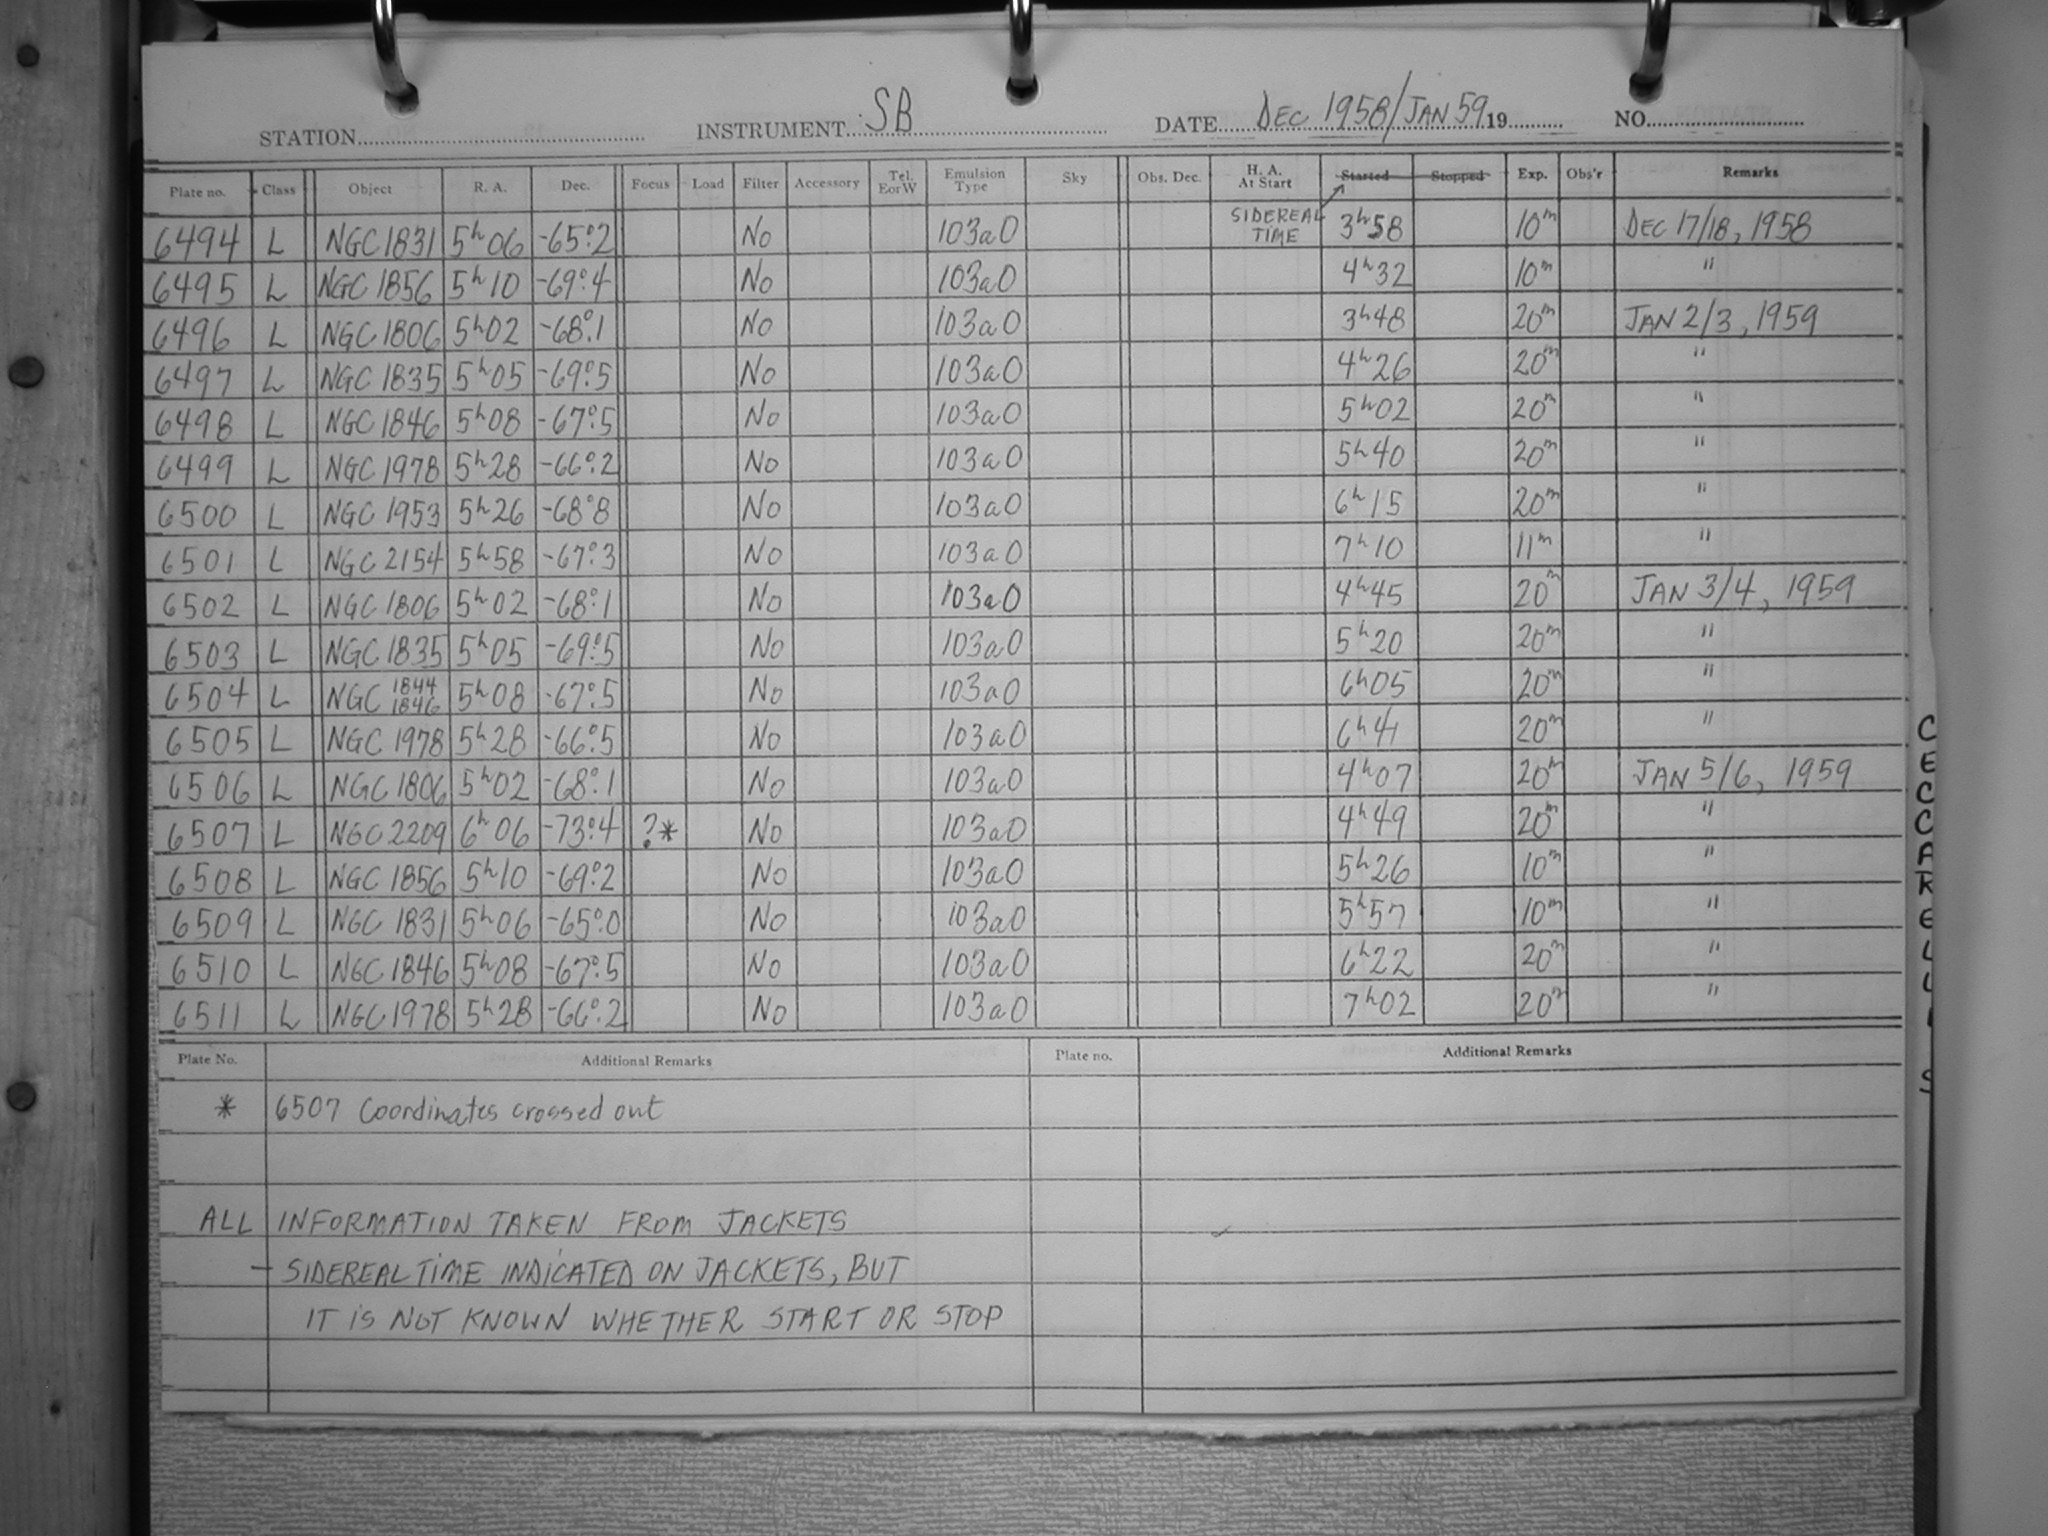 STATION INSTRUMENT SB DATE DEC 1958/JAN 59 19 NO.
Plate no. Class Object R. A. Dec. Focus Load Filter Accessory Tel. E or W Emulsion Type Sky Obs. Dec. H. A. At Start Started Stopped Exp. Obs'r Remarks
6494 L NGC 1831 5h 06 -65°.2 No 103aO SIDEREAL TIME 3h58 10m DEC 17/18, 1958
6495 L NGC 1856 5h 10 -69°.4 No 103aO 4h32 10m "
6496 L NGC 1806 5h02 -68°.1 No 103aO 3h48 20m JAN 2/3, 1959
6497 L NGC 1835 5h05 -69°.5 No 103aO 4h26 20m "
6498 L NGC 1846 5h08 -67°.5 No 103aO 5h02 20m "
6499 L NGC 1978 5h28 -66°.2 No 103aO 5h40 20m "
6500 L NGC 1953 5h26 -68°8 No 103aO 6h15 20m "
6501 L NGC 2154 5h58 -67°.3 No 103aO 7h10 11m "
6502 L NGC 1806 5h02 -68°.1 No 103aO 4h45 20m JAN 3/4, 1959
6503 L NGC 1835 5h05 -69°.5 No 103aO 5h20 20m "
6504 L NGC 1844 1846 5h08 -67°.5 No 103aO 6h05 20m "
6505 L NGC 1978 5h28 -66°.5 No 103aO 6h41 20m "
6506 L NGC 1806 5h02 -68°.1 No 103aO 4h07 20m JAN 5/6, 1959
6507 L NGC 2209 6h 06 -73°.4 ?* No 103aO 4h49 20m "
6508 L NGC 1856 5h10 -69°.2 No 103aO 5h26 10m "
6509 L NGC 1831 5h06 -65°.0 No 103aO 5h57 10m "
6510 L NGC 1846 5h08 -67°.5 No 103aO 6h22 20m "
6511 L NGC 1978 5h28 -66°.2 No 103aO 7h02 20m "
Plate No. Additional Remarks Plate no. Additional Remarks
* 6507 Coordinates crossed out
ALL INFORMATION TAKEN FROM JACKETS
- SIDEREAL TIME INDICATED ON JACKETS, BUT
IT IS NOT KNOWN WHETHER START OR STOP